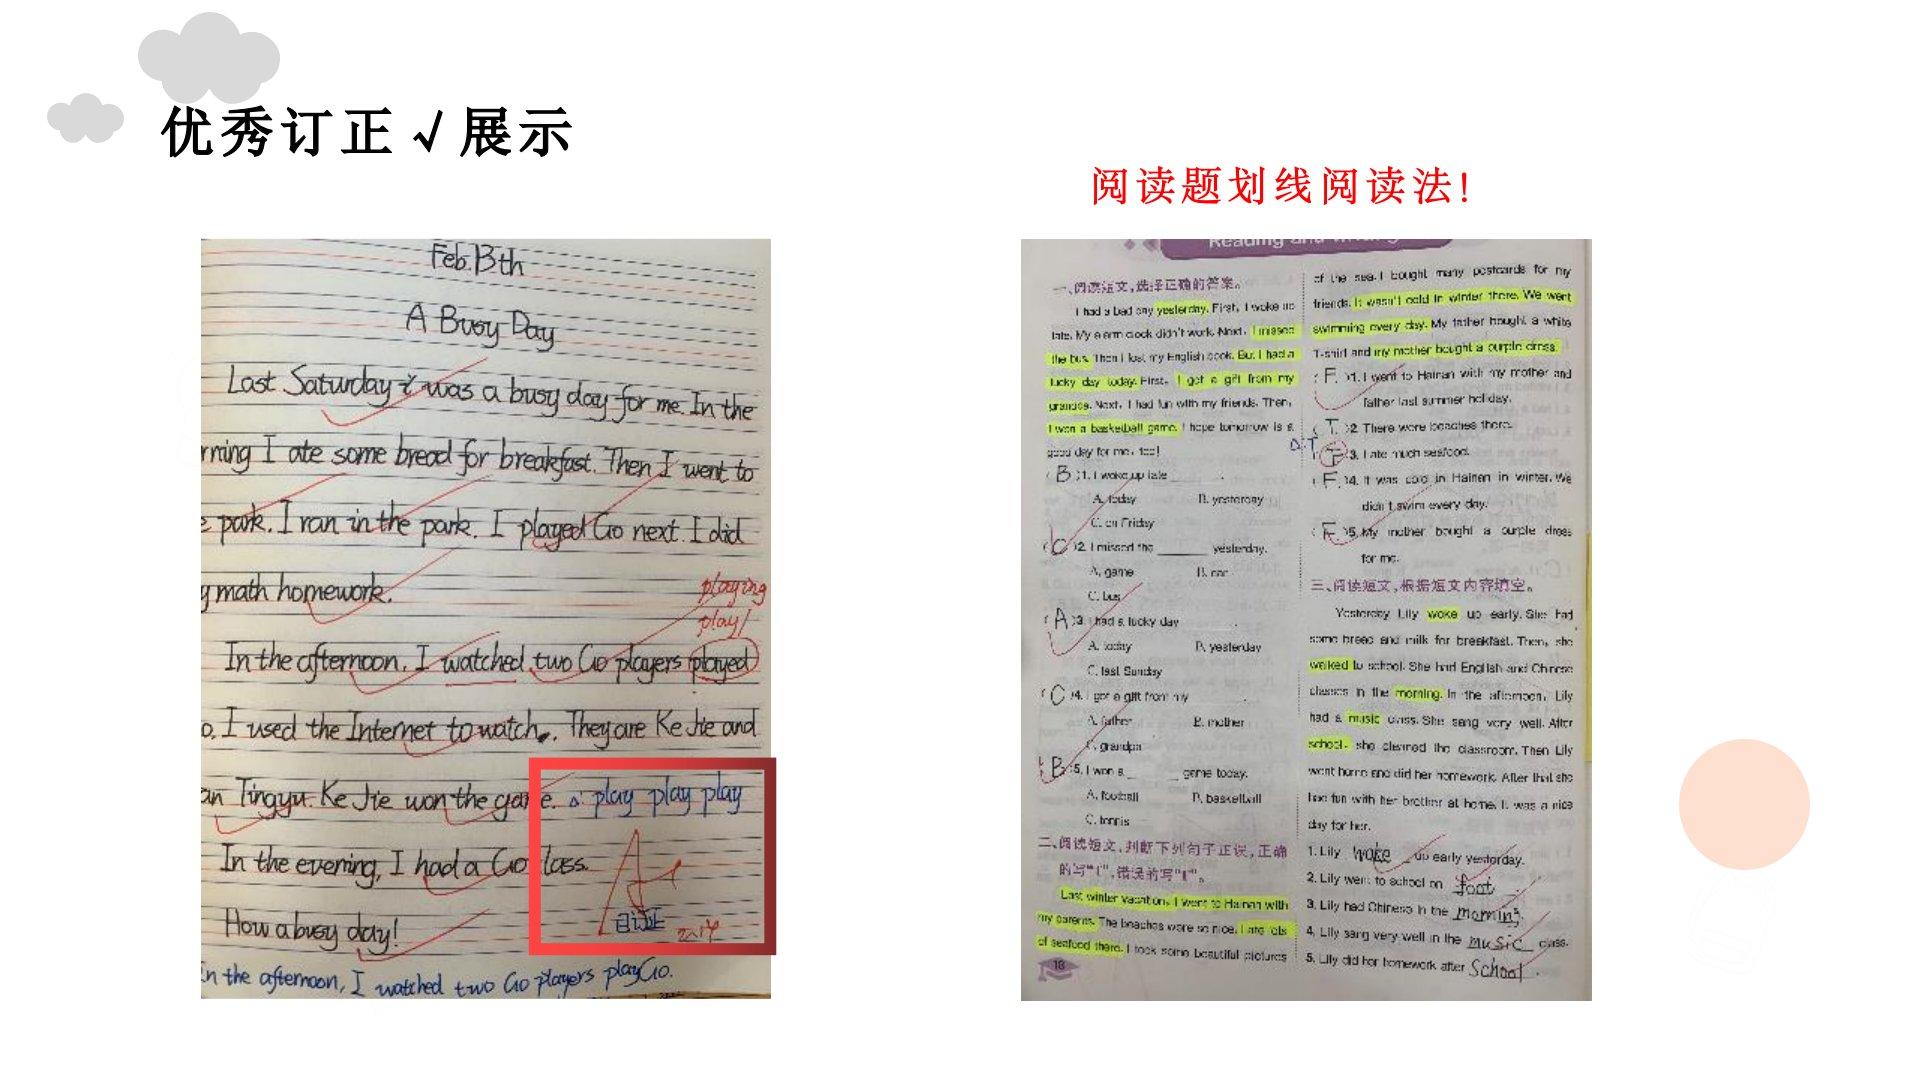 优秀订正√展示
阅读题划线阅读法!
Feb.13th
A Busy Day
Last Saturday i was a busy day for me. In the
rning I ate some bread for breakfast. Then I went to
e park. I ran in the park. I played Go next. I did
y math homework.
playing
play/
In the afternoon, I watched two Go players played
o. I used the Internet to watch. They are Ke Jie and
an Tingyu. Ke Jie won the game. △: play play play
In the evening, I had a Go class.
A
已订正
How a busy day!
In the afternoon, I watched two Go players play Go.
Reading and writing
一、阅读短文,选择正确的答案。
I had a bad day yesterday. First, I woke up
late. My alarm clock didn't work. Next, I missed
the bus. Then I lost my English book. But I had a
lucky day today. First, I got a gift from my
grandpa. Next, I had fun with my friends. Then,
I won a basketball game. I hope tomorrow is a
good day for me, too!
( B )1. I woke up late ______.
A. today B. yesterday
C. on Friday
( C )2. I missed the ______ yesterday.
A. game B. car
C. bus
( A )3. I had a lucky day ______.
A. today B. yesterday
C. last Sunday
( C )4. I got a gift from my ______.
A. father B. mother
C. grandpa
( B )5. I won a ______ game today.
A. football B. basketball
C. tennis
二、阅读短文,判断下列句子正误,正确
的写“T”,错误的写“F”。
Last winter vacation, I went to Hainan with
my parents. The beaches were so nice. I ate lots
of seafood there. I took some beautiful pictures
18
of the sea. I bought many postcards for my
friends. It wasn't cold in winter there. We went
swimming every day. My father bought a white
T-shirt and my mother bought a purple dress.
( F )1. I went to Hainan with my mother and
father last summer holiday.
( T )2. There were beaches there.
△:T
( F )3. I ate much seafood.
( F )4. It was cold in Hainan in winter. We
didn't swim every day.
( F )5. My mother bought a purple dress
for me.
三、阅读短文,根据短文内容填空。
Yesterday Lily woke up early. She had
some bread and milk for breakfast. Then, she
walked to school. She had English and Chinese
classes in the morning. In the afternoon, Lily
had a music class. She sang very well. After
school, she cleaned the classroom. Then Lily
went home and did her homework. After that she
had fun with her brother at home. It was a nice
day for her.
1. Lily woke up early yesterday.
2. Lily went to school on foot.
3. Lily had Chinese in the morning.
4. Lily sang very well in the music class.
5. Lily did her homework after School.